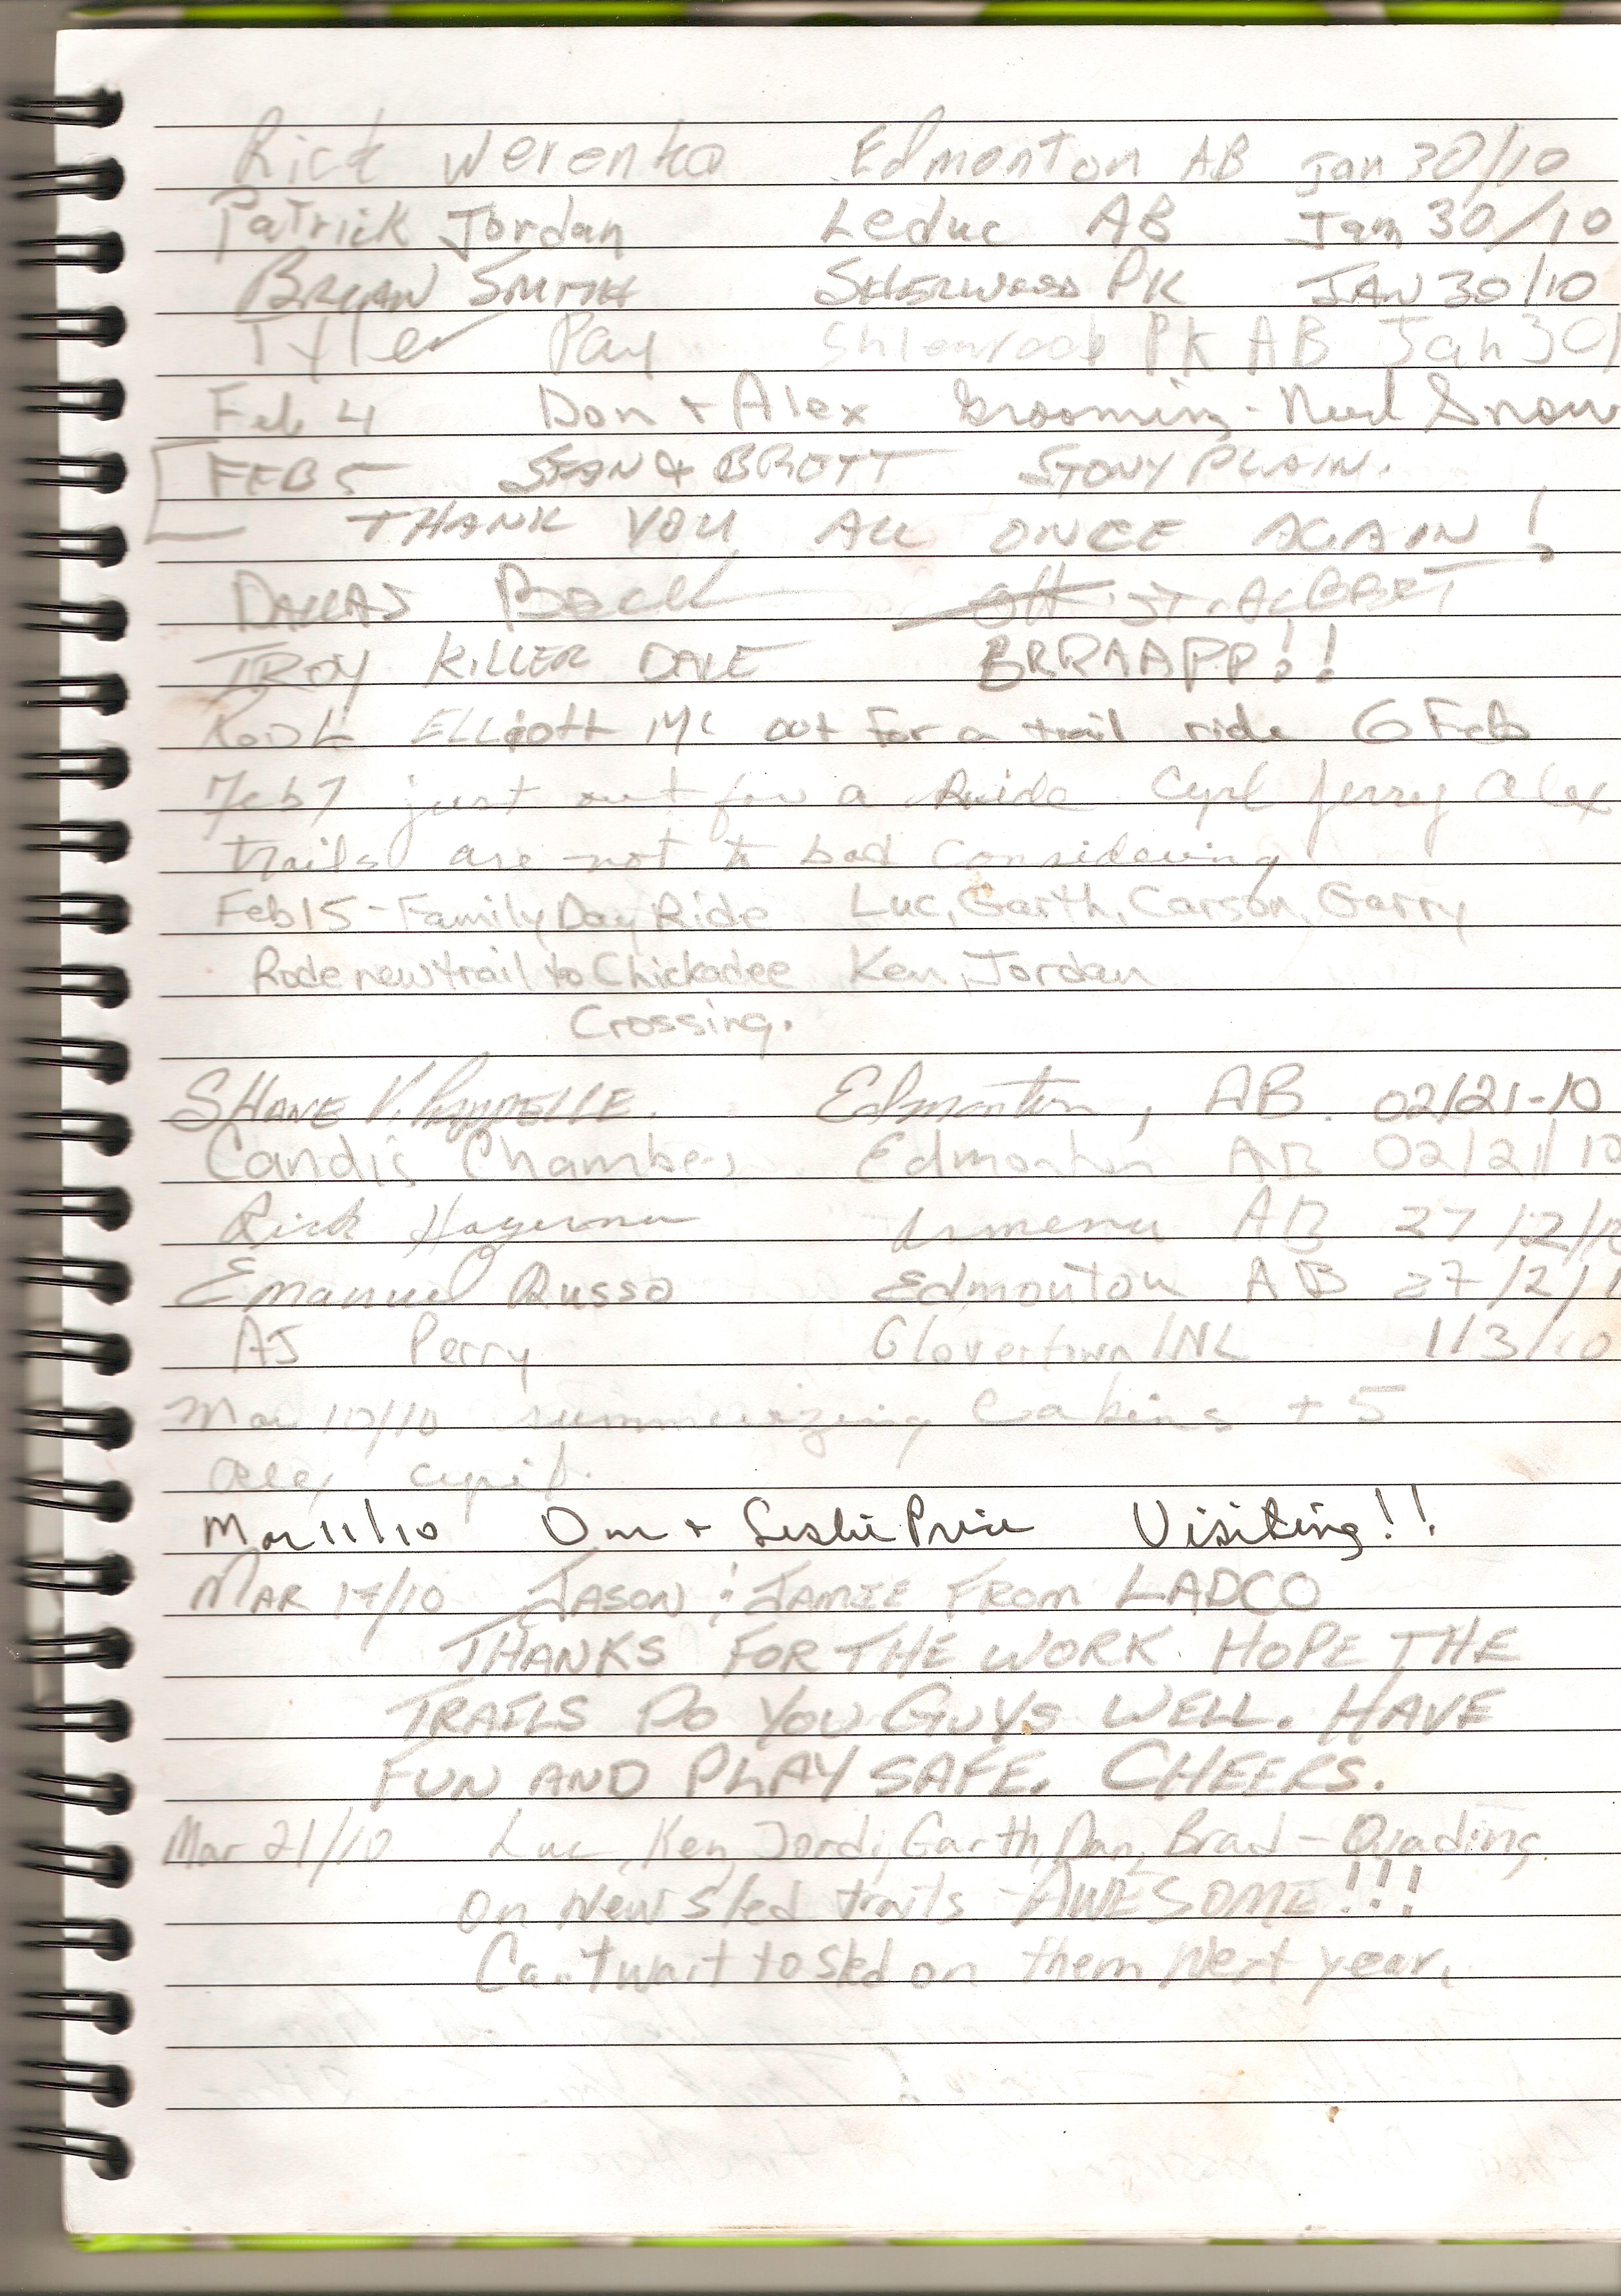 Rick Werenka Edmonton AB Jan 30/10
Patrick Jordan Leduc AB Jan 30/10
BRYAN SMITH SHERWOOD PK JAN 30/10
Tyler Pay PK AB Jan 30/
Feb 4 Don + Alex Grooming - Need Snow
FEB 5 SEAN & BRETT STONY PLAIN.
THANK YOU ALL ONCE AGAIN!
DALLAS Bock ST. ALBERT
TROY KILLER DALE BRRAAPP!!
Elliott Mc out For a trail ride 6 Feb
Feb 7 just out for a Ride Jerry Alex
trails are not to bad considering
Feb 15 - Family Day Ride Luc, Garth, Carson, Garry
Rode new trail to Chickadee Ken, Jordan
Crossing.
SHANE Edmonton, AB. 02/21-10
Candis Chambers Edmonton AB 02/21/10
Rick AB 27/2/10
Emanuel Russo Edmonton AB 27/2/1
AJ Perry Glovertown/NL 1/3/10
Mar 10/10 summerizing cabins + 5
Mar 11/10 + Leslie Price Visiting!!
MAR 17/10 JASON & JAMIE FROM LADCO
THANKS FOR THE WORK HOPE THE
TRAILS DO YOU GUYS WELL. HAVE
FUN AND PLAY SAFE. CHEERS.
Mar 21/10 Luc, Ken, Jordi, Garth, Dan, Brad - Quading
on New Sled trails - AWESOME!!!
Can't wait to Sled on them Next year.